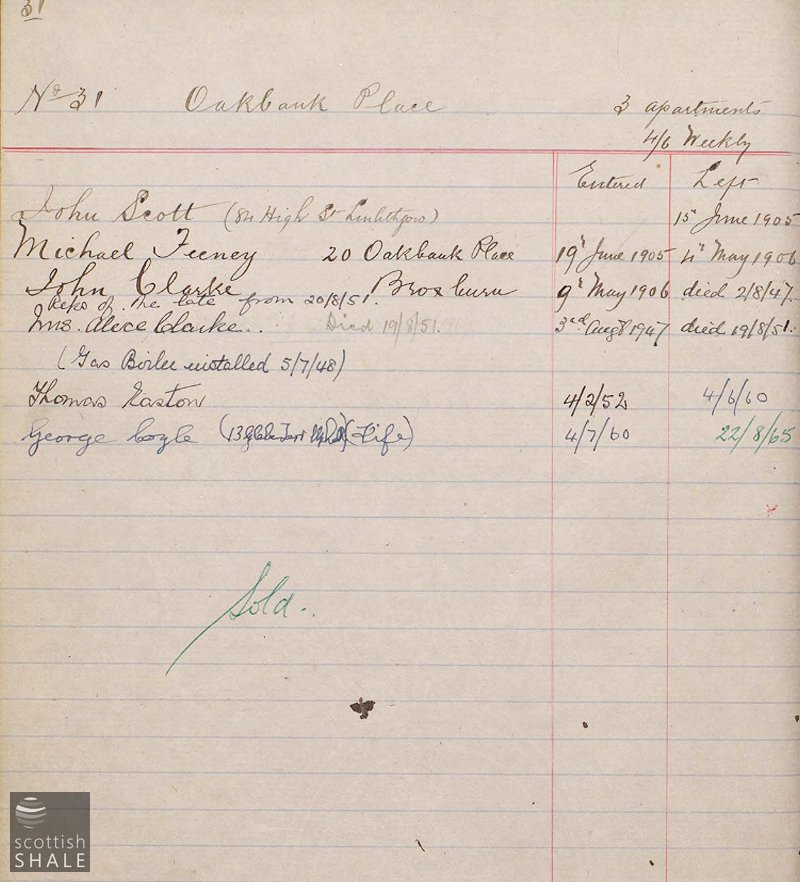 31
No 31 Oakbank Place 3 apartments
4/6 Weekly
Entered Left
John Scott (84 High St Linlithgow) 15th June 1905
Michael Feeney 20 Oakbank Place 19th June 1905 4th May 1906
John Clarke Broxburn 9th May 1906 died 2/8/47.
Reps of the late from 20/8/51.
Mrs. Alice Clarke.. Died 19/8/51. 3rd Augt 1947 died 19/8/51.
(Gas Boiler installed 5/7/48)
Thomas Easton 4/2/52 4/6/60
George Coyle (13 Glebe Terr (Fife) 4/7/60 22/8/65
Sold..
scottish
SHALE